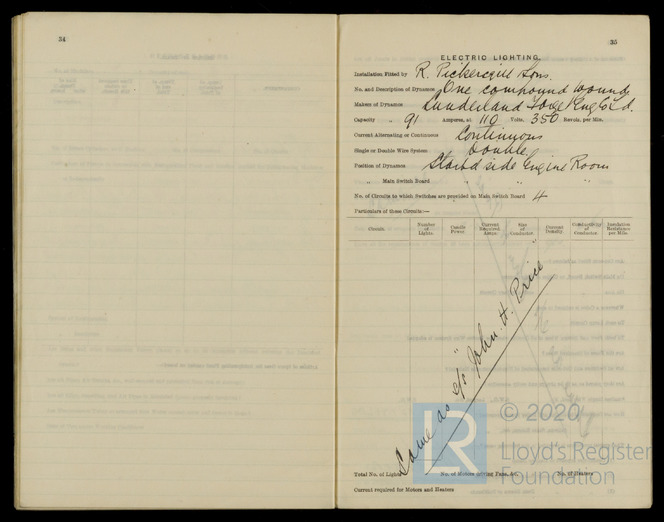 34
35
ELECTRIC LIGHTING.
Installation Fitted by R. Pickersgill & Sons.
No. and Description of Dynamos One compound wound
Makers of Dynamos Sunderland Forge & Eng Co Ld.
Capacity 91 Amperes, at 110 Volts, 350 Revols. per Min.
Current Alternating or Continuous Continuous
Single or Double Wire System Double
Position of Dynamos Starbd side Engine Room
„ Main Switch Board „ „ „
No. of Circuits to which Switches are provided on Main Switch Board 4
Particulars of these Circuits:—
Circuit. Number of Lights. Candle Power. Current Required. Amps. Size of Conductor. Current Density. Conductivity of Conductor. Insulation Resistance per Mile.
Same as s/s "John. H. Price"
Total No. of Lights No. of Motors driving Fans, &c. No. of Heaters
Current required for Motors and Heaters
LR
© 2020
Lloyd's Register
Foundation